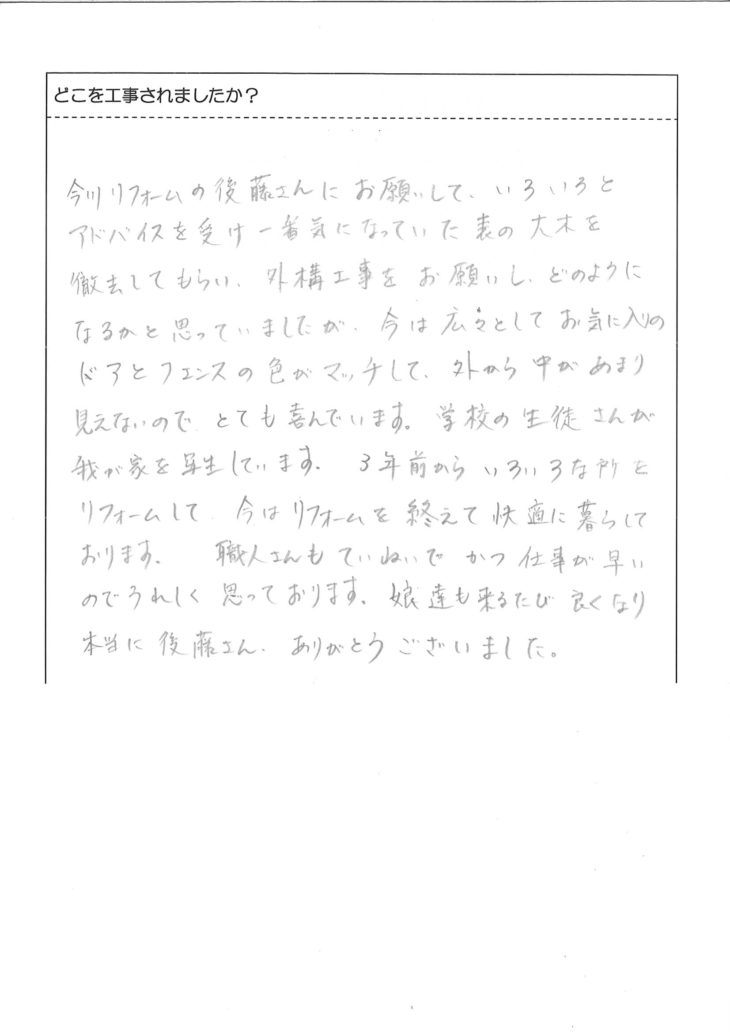 どこを工事されましたか？
今川リフォームの後藤さんにお願いして、いろいろと
アドバイスを受け一番気になっていた表の大木を
徹去してもらい、外構工事をお願いし、どのように
なるかと思っていましたが、今は広々としてお気に入りの
ドアとフェンスの色がマッチして、外から中があまり
見えないので、とても喜んでいます。学校の生徒さんが
我が家を写生しています。3年前からいろいろな所を
リフォームして、今はリフォームを終えて快適に暮らして
おります。職人さんもていねいでかつ仕事が早い
のでうれしく思っております。娘達も来るたび良くなり
本当に後藤さん、ありがとうございました。